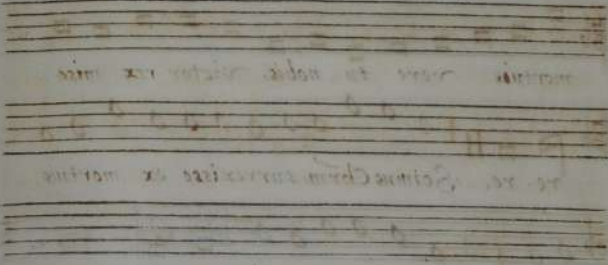 mortuis vere tu nobis. victor rex mise
re re. Scimus Chr̄m surrexisse ex mortuis